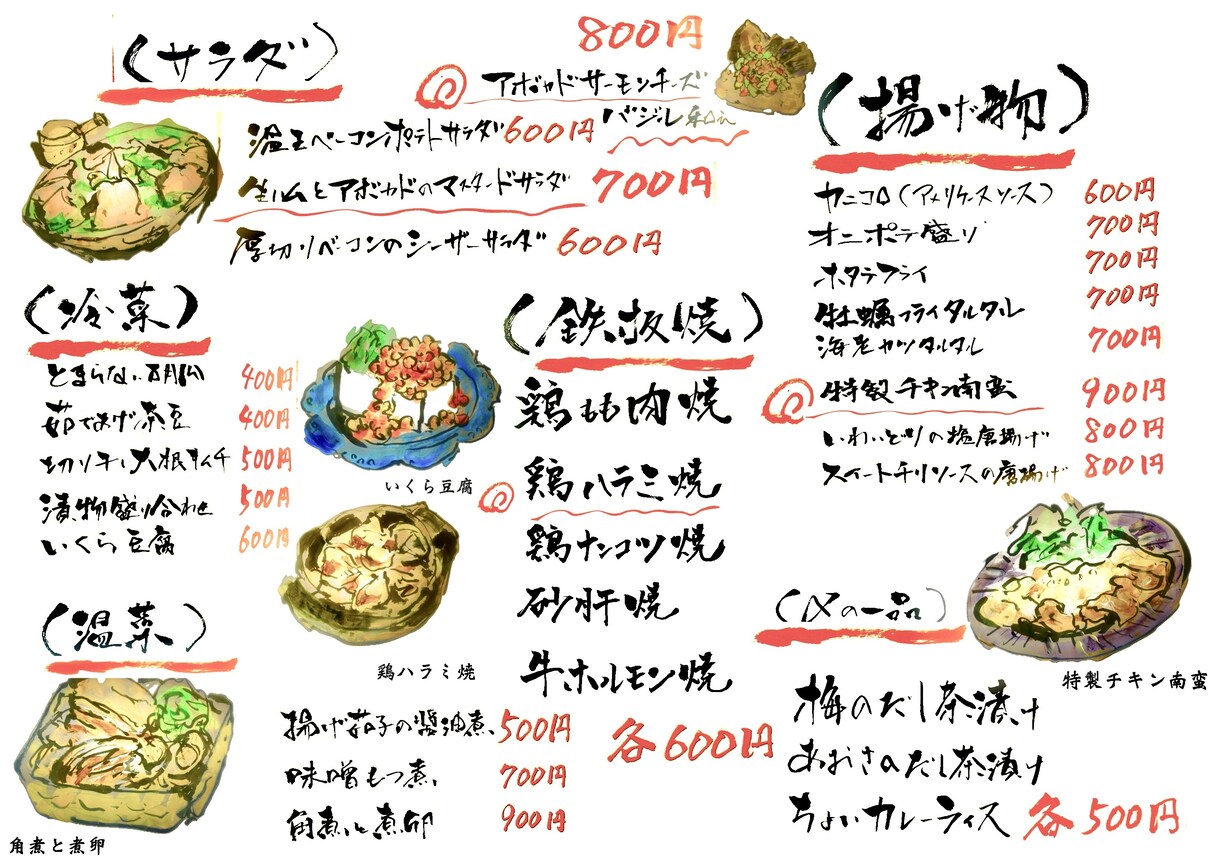 （サラダ）
800円
アボカドサーモンチーズ
バジル和え
温玉ベーコンポテトサラダ 600円
生ハムとアボカドのマスタードサラダ 700円
厚切りベーコンのシーザーサラダ 600円
（冷菜）
とまらない胡瓜 400円
茹であげ茶豆 400円
切り干し大根キムチ 500円
漬物盛り合わせ 500円
いくら豆腐 600円
いくら豆腐
（温菜）
揚げ茄子の醤油煮 500円
味噌もつ煮 700円
角煮と煮卵 900円
角煮と煮卵
（鉄板焼）
鶏もも肉焼
鶏ハラミ焼
鶏ナンコツ焼
砂肝焼
牛ホルモン焼
各600円
鶏ハラミ焼
（揚げ物）
カニコロ（アメリケーヌソース） 600円
オニポテ盛り 700円
ホタテフライ 700円
牡蠣フライタルタル 700円
海老カツタルタル 700円
特製チキン南蛮 900円
いわいどりの塩唐揚げ 800円
スイートチリソースの唐揚げ 800円
特製チキン南蛮
（〆の一品）
梅のだし茶漬け
あおさのだし茶漬け
ちょいカレーライス
各500円